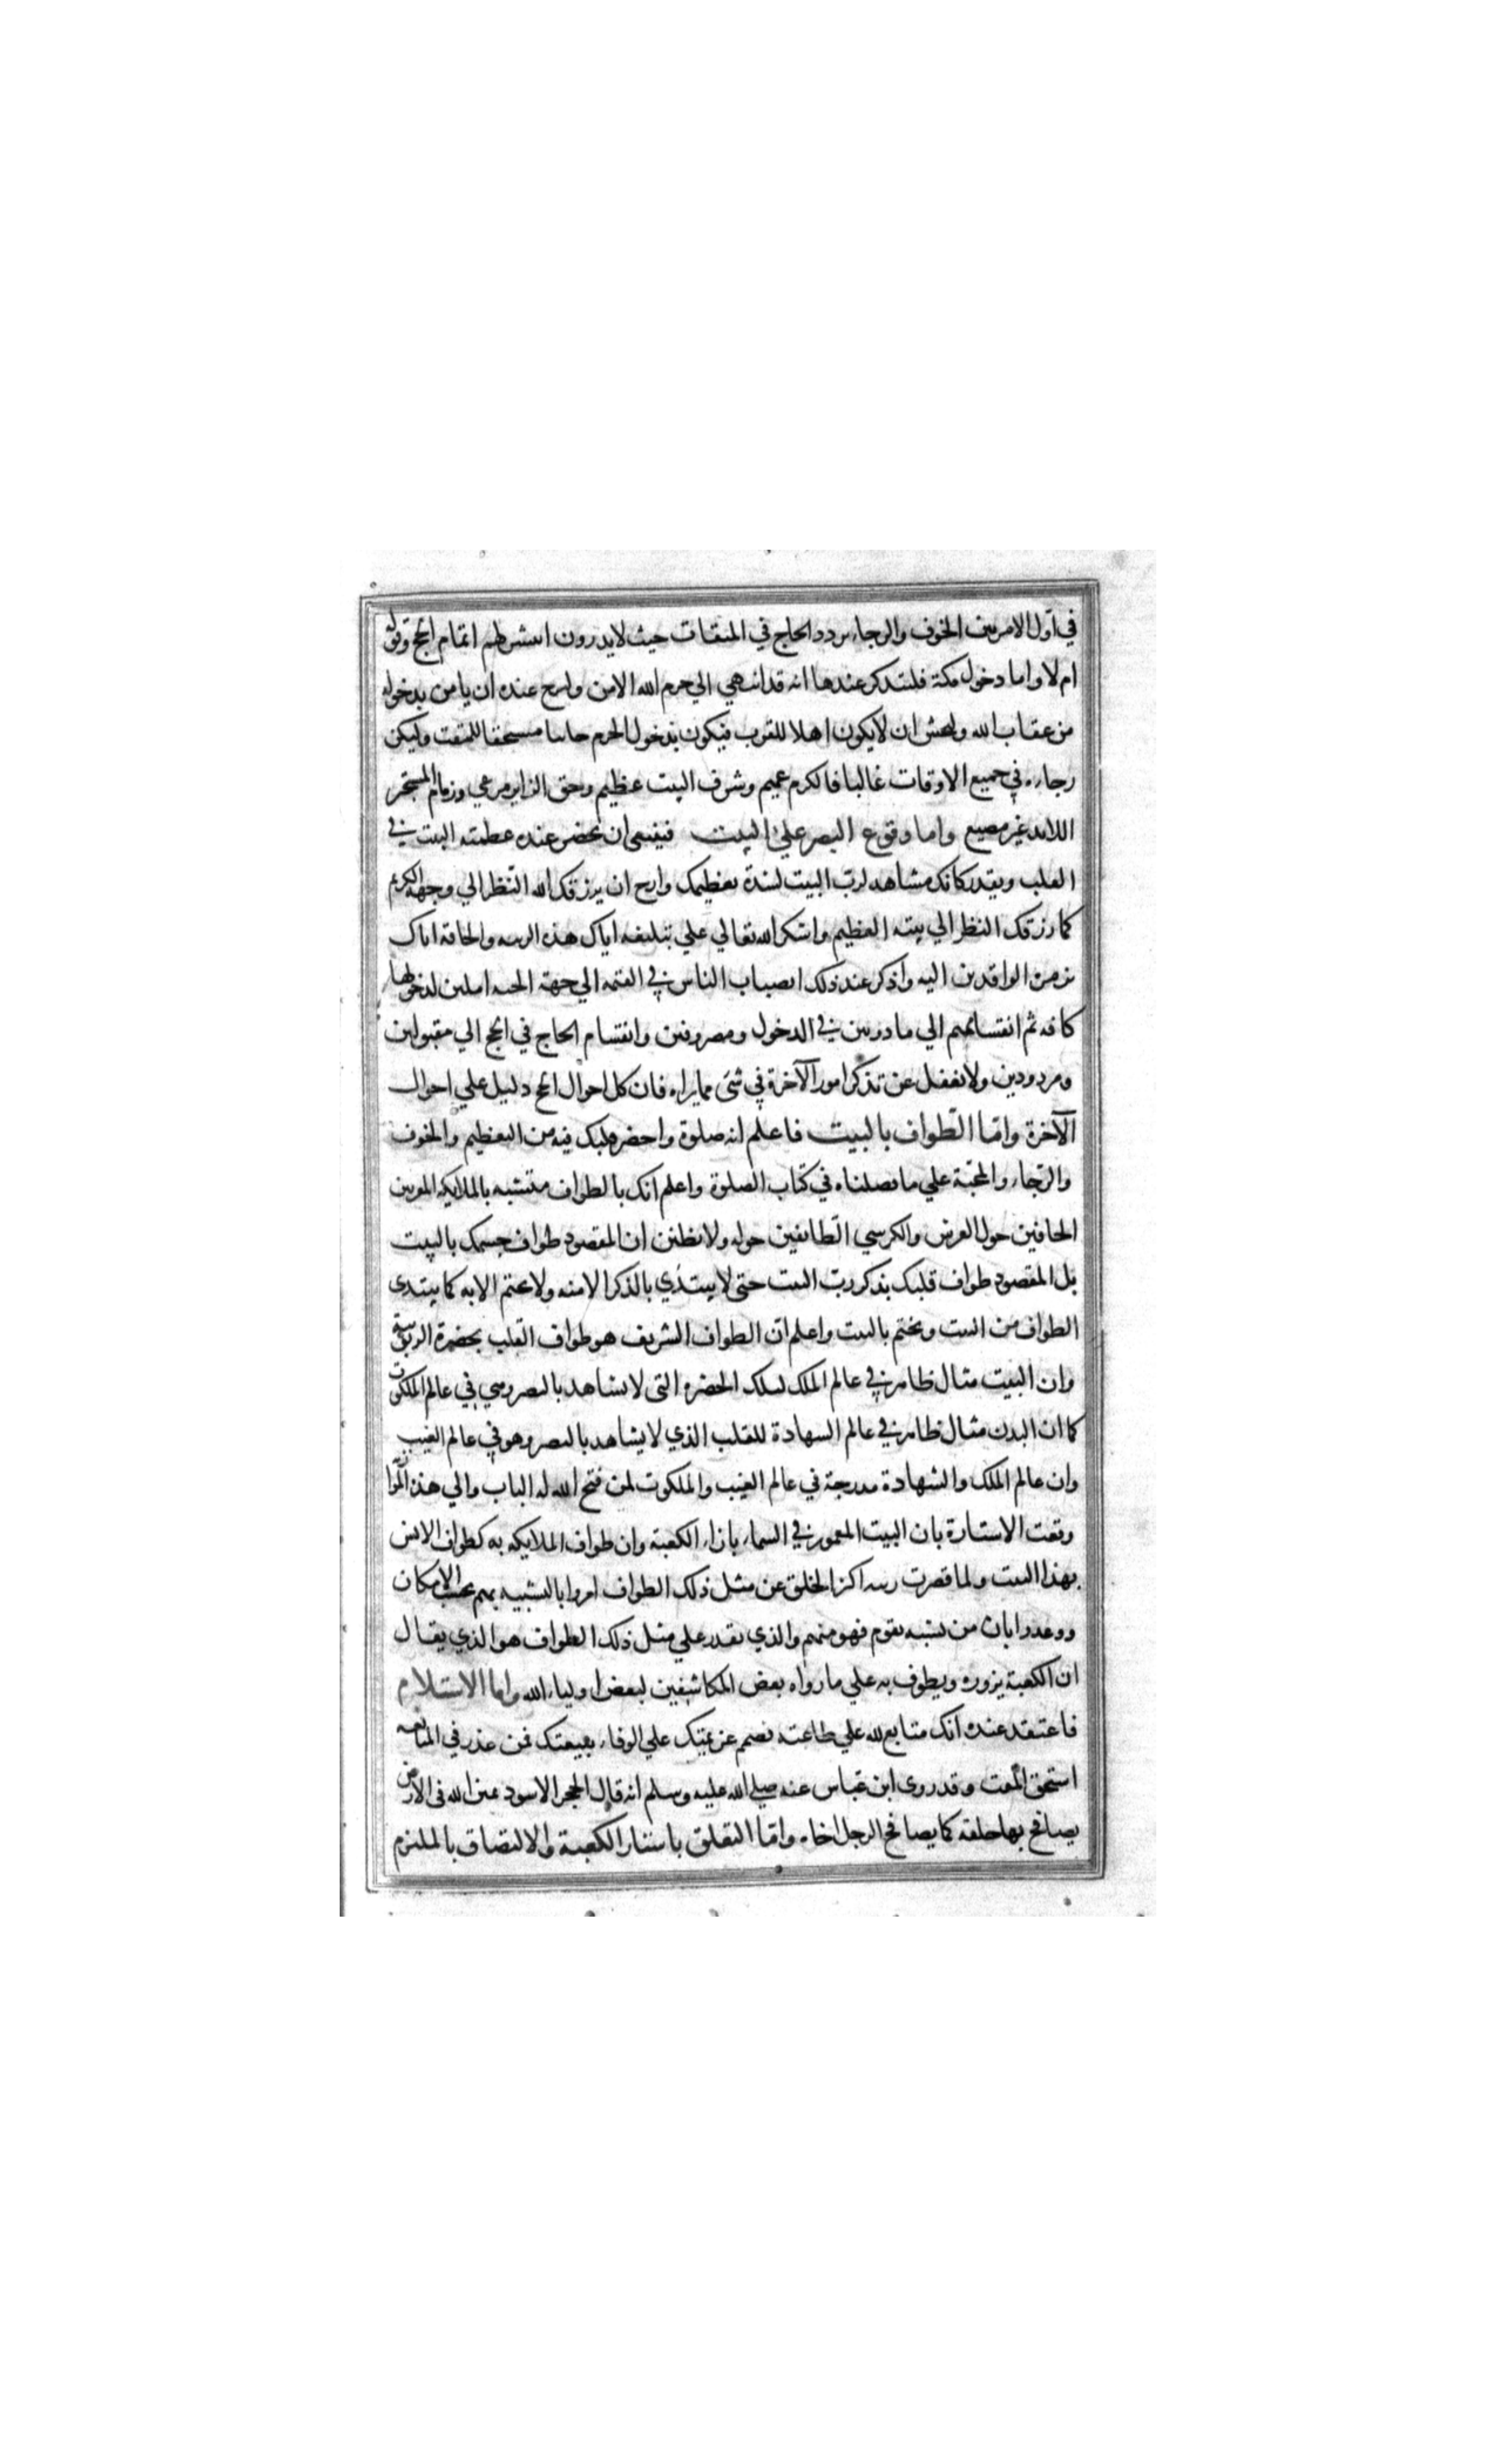 في اول الامر بين الخوف والرجاء تردد الحاج في الميقات حيث لا يدرون ايتيسر لهم اتمام الحج وقبوله
ام لا واما دخول مكة فليتذكر عندها انه قد انتهي الي حرم الله الامن وليرج عنده ان يامن بدخوله
من عقاب الله وليخش ان لا يكون اهلا للقرب فيكون بدخول الحرم خايبا مستحقا للمقت وليكن
رجاءه في جميع الاوقات غالبا فالكرم عميم وشرف البيت عظيم وحق الزاير مرعي وذمام المستجير
اللايذ غير مضيع واما وقوع البصر علي البيت فينبغي ان يحضر عنده عظمة البيت في
القلب ويقدر كانك مشاهد لرب البيت لشدة تعظيمك وارج ان يرزقك الله النظر الي وجهه الكريم
كما رزقك النظر الي بيته العظيم واشكر الله تعالي علي تبليغه اياك هذه الرتبه والحاقه اياك
بزمرة الوافدين اليه واذكر عند ذلك انصباب الناس في القيمه الي جهة الجنه املين لدخولها
كافه ثم انقسامهم الي ماذونين في الدخول ومصروفين وانقسام الحاج في الحج الي مقبولين
ومردودين ولا تغفل عن تذكر امور الآخرة في شئ مما يراه فان كل احوال الحج دليل علي احوال
الآخرة واما الطواف بالبيت فاعلم انه صلوة واحضر قلبك فيه من التعظيم والخوف
والرجاء والمحبة علي ما فصلناه في كتاب الصلوة واعلم انك بالطواف متشبه بالملايكه المقربين
الحافين حول العرش والكرسي الطايفين حوله ولا تظنن ان المقصود طواف جسمك بالبيت
بل المقصود طواف قلبك بذكر رب البيت حتى لا يبتدي بالذكر الا منه ولا يختم الا به كما يبتدى
الطواف من البيت ويختم بالبيت واعلم ان الطواف الشريف هو طواف القلب بحضرة الربوبية
وان البيت مثال ظاهر في عالم الملك لتلك الحضره التى لا تشاهد بالبصر وهي في عالم الملكوت
كما ان البدن مثال ظاهر في عالم الشهادة للقلب الذي لا يشاهد بالبصر وهو في عالم الغيب
وان عالم الملك والشهادة مدرجة في عالم الغيب والملكوت لمن فتح الله له الباب والي هذه الموازنة
وقعت الاشارة بان البيت المعمور في السماء بازاء الكعبة وان طواف الملايكه به كطواف الانس
بهذا البيت ولما قصرت رتبه اكثر الخلق عن مثل ذلك الطواف امروا بالتشبيه بهم بحسب الامكان
ووعدوا بان من تشبه بقوم فهو منهم والذي يقدر علي مثل ذلك الطواف هو الذي يقال
ان الكعبة يزوره ويطوف به علي ما رواه بعض المكاشفين لبعض اولياء الله واما الاستلام
فاعتقد عنده انك متابع لله علي طاعته فصمم عزيمتك علي الوفاء ببيعتك فمن غدر في المتابعه
استحق المقت وقد روى ابن عباس عنه صلي الله عليه وسلم انه قال الحجر الاسود يمين الله فى الارض
يصافح بها خلقه كما يصافح الرجل اخاه واما التعلق باستار الكعبة والالتصاق بالملتزم